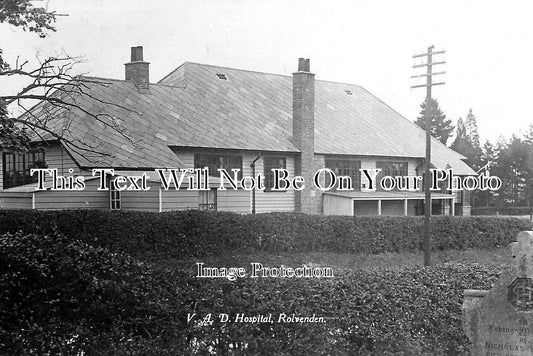 This Text Will Not Be On Your Photo
Image Protection
V. A. D. Hospital, Rolvenden.
NICHOLAS